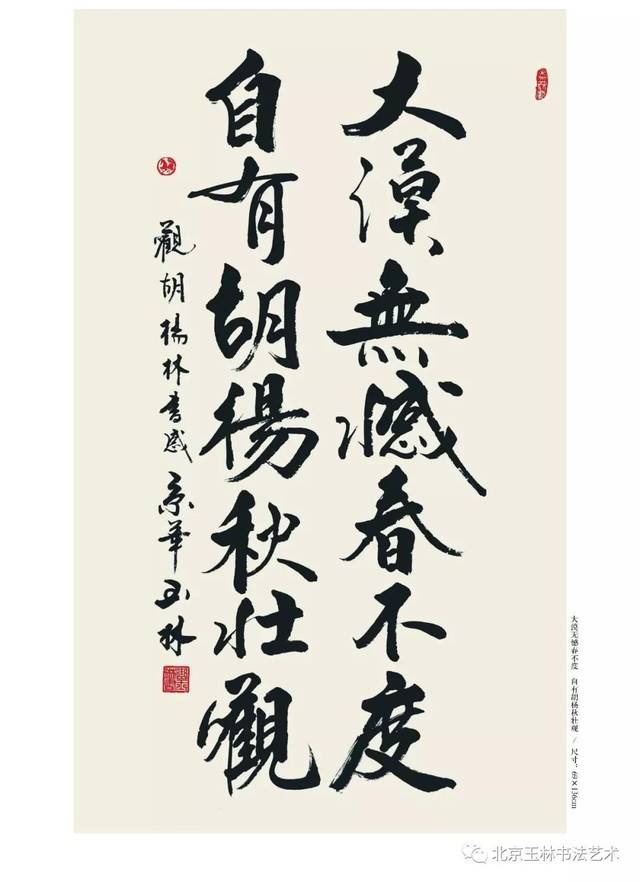 大漠無憾春不度
自有胡楊秋壯觀
觀胡楊林書感 京華玉林
大漠无憾春不度 自有胡杨秋壮观 / 尺寸：69×136cm
北京玉林书法艺术